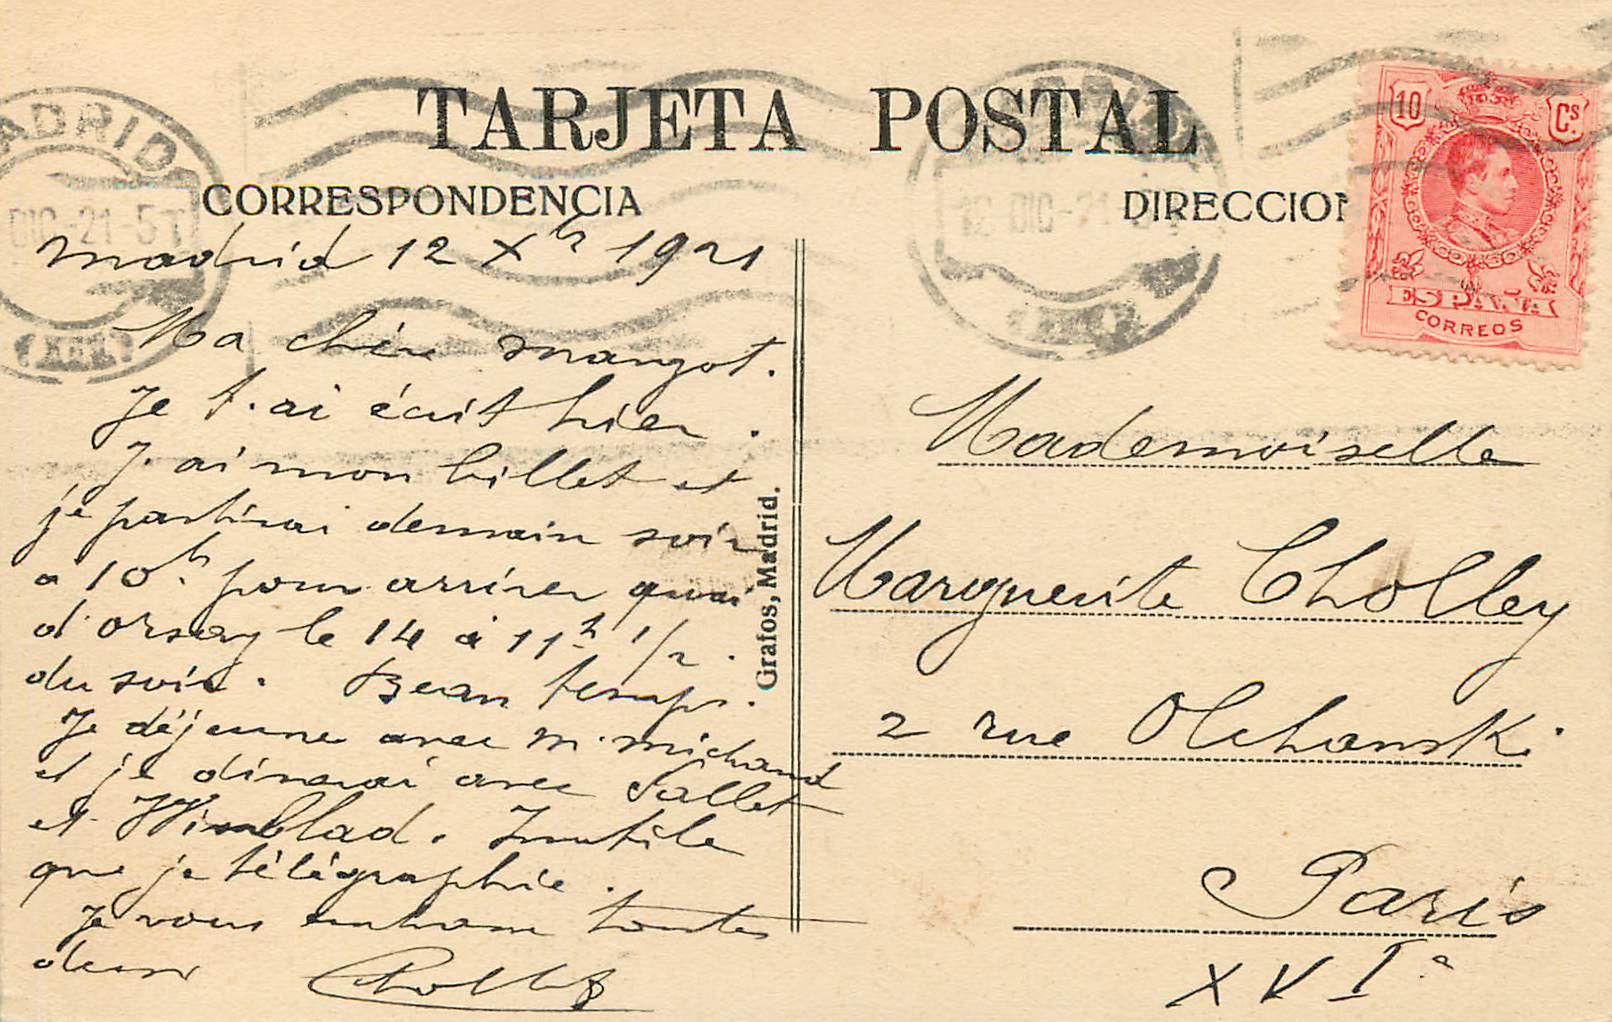 TARJETA POSTAL
CORRESPONDENCIA
DIRECCION
MADRID
DIC-21-5T
DIC-21
10 Cs.
ESPAÑA
CORREOS
Madrid 12 Xbr 1921
Ma chère Margot.
Je t'ai écrit hier.
J'ai mon billet et
je partirai demain soir
a 10h. pour arriver quai
d'orsay le 14 à 11h 1/2.
du soir. Beau temps.
Je déjeune avec M. Michaud
et je dinerai avec Sallet
et Winblad. Inutile
que je télégraphie.
Je vous embrasse toutes
deux Cholley
Grafos, Madrid.
Mademoiselle
Marguerite Cholley
2 rue Olchanski
Paris
XVIe